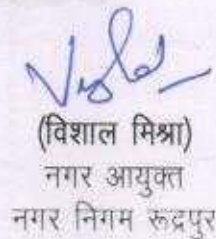 (विशाल मिश्रा)
नगर आयुक्त
नगर निगम रूद्रपुर